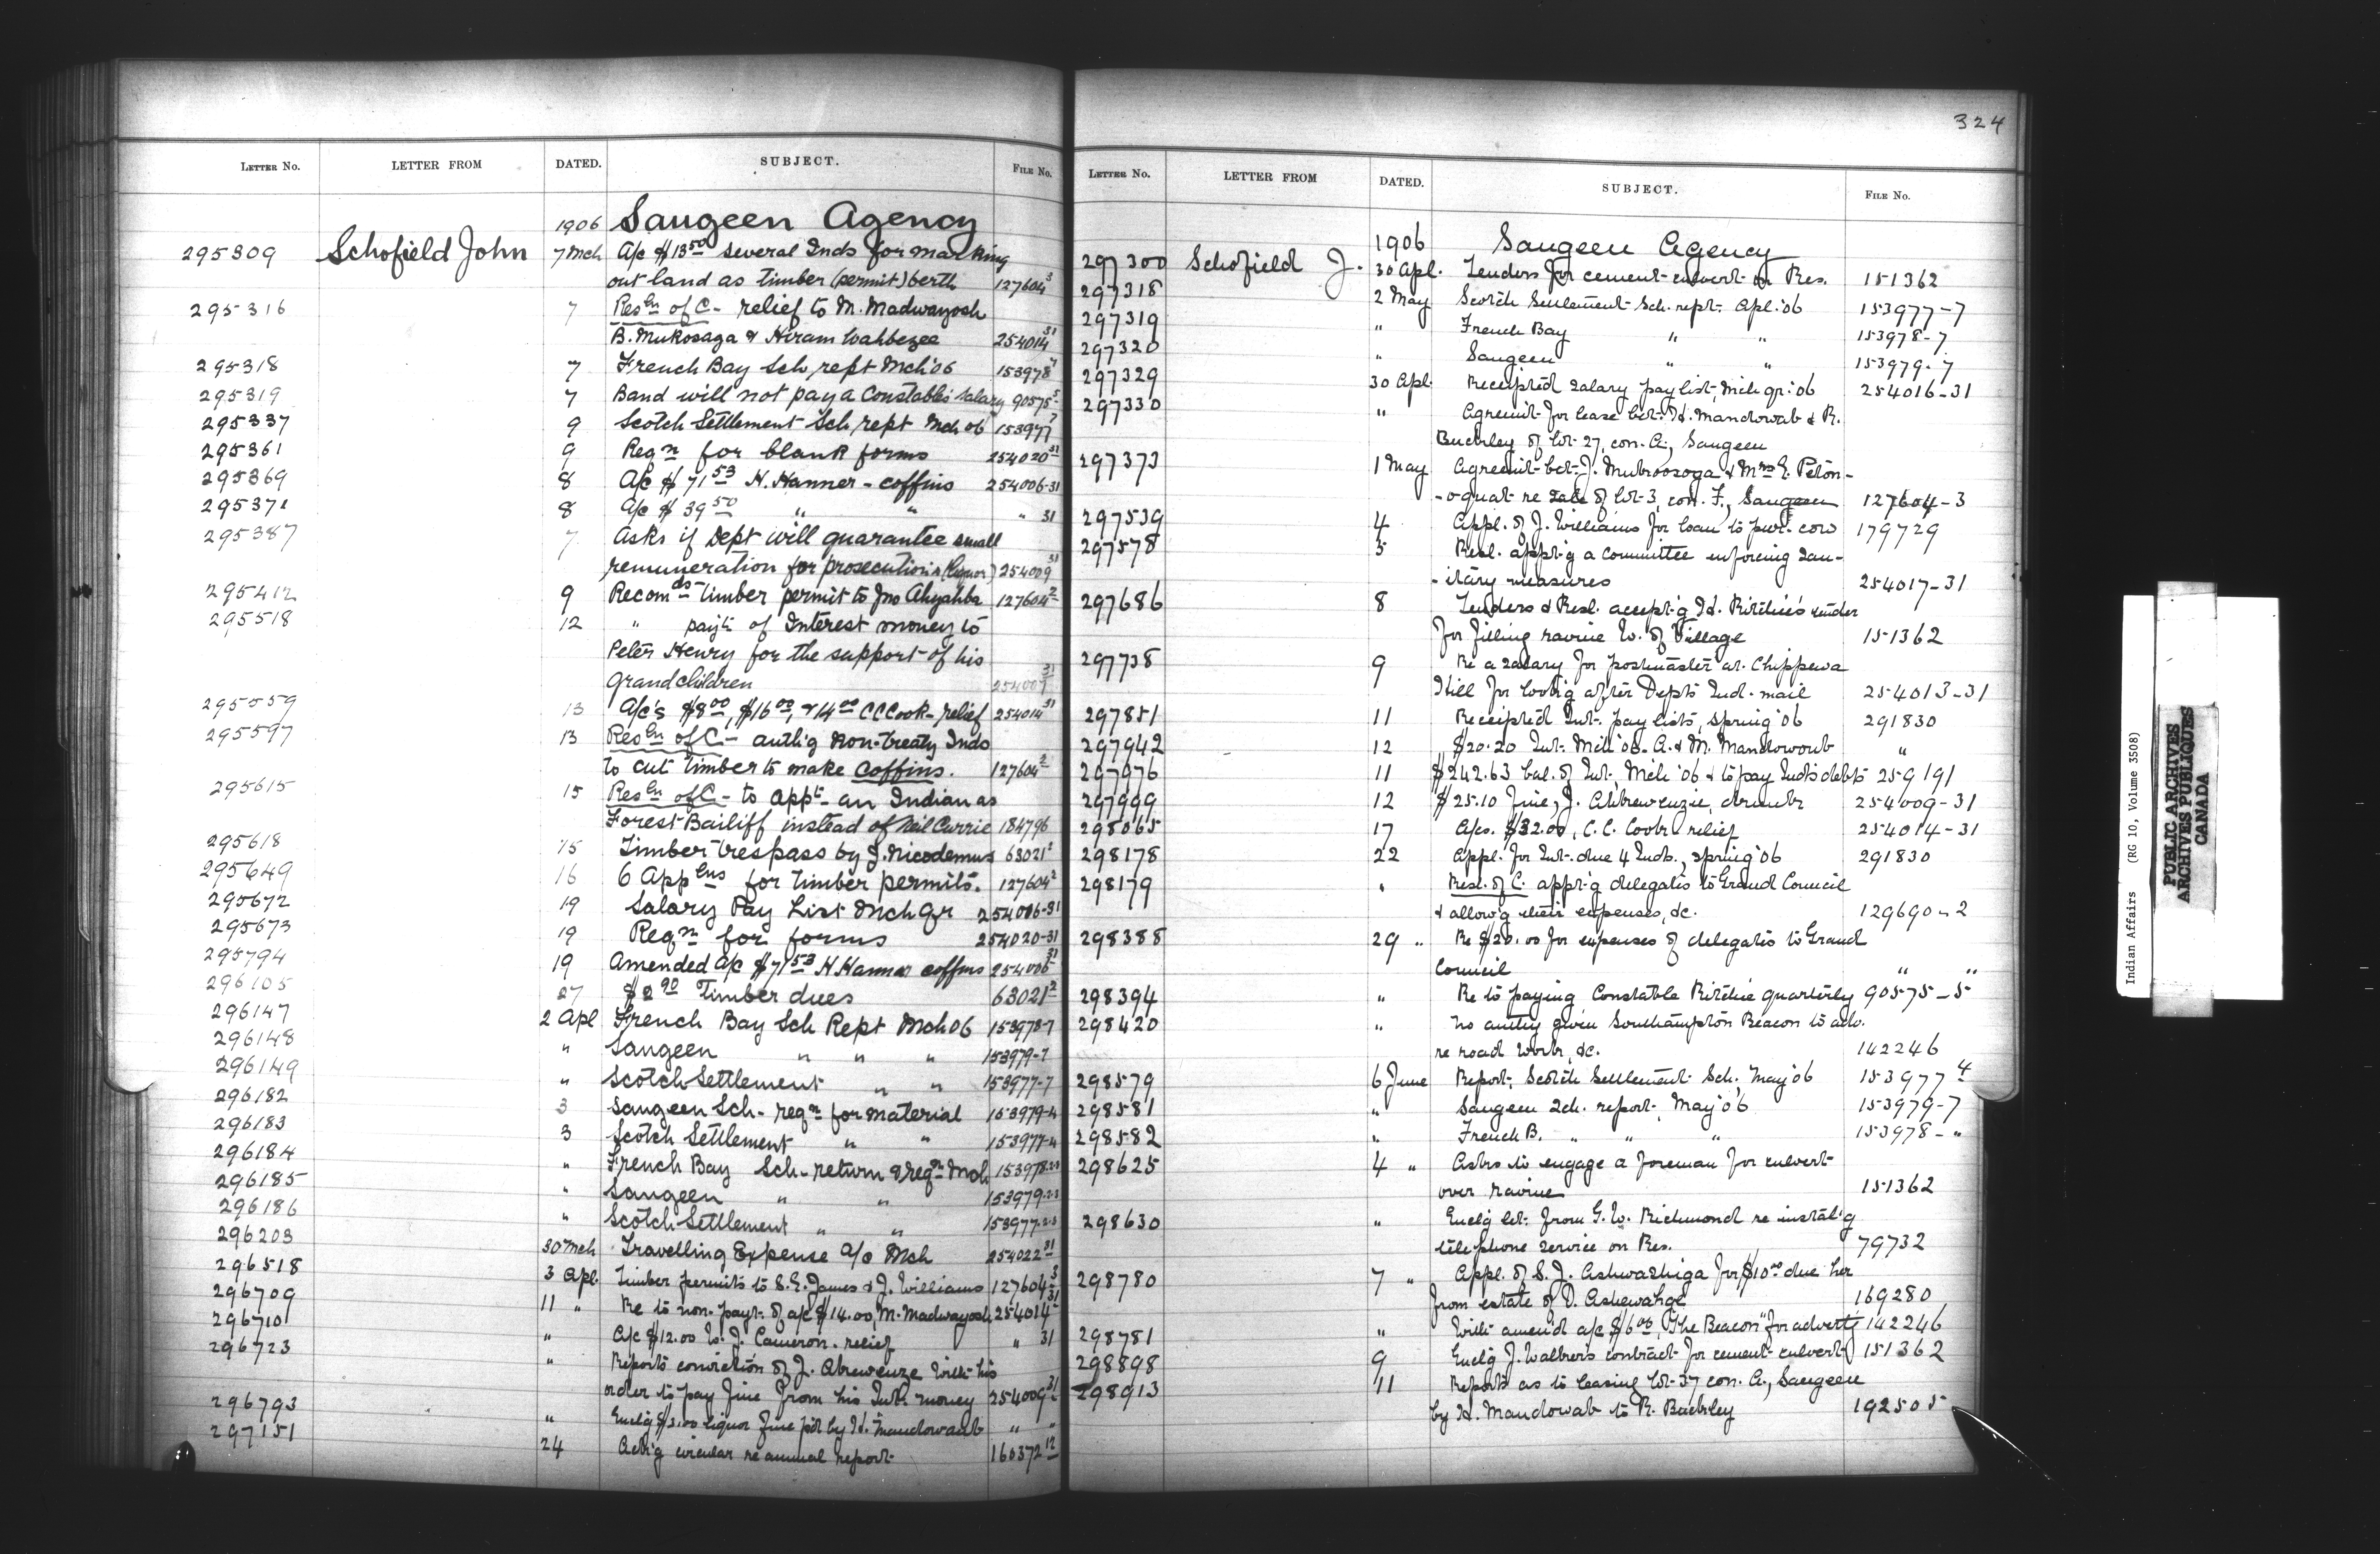 LETTER No. LETTER FROM DATED. SUBJECT. FILE No.
1906 Saugeen Agency
295309 Schofield John 7 Mch A/c $13.50 several Inds for marking
out land as timber (permit) berth 127604 3
295316 7 Resln of C - relief to M. Madwayosh
B. Mukosaga & Hiram Wahbezee 254014 31
295318 7 French Bay Sch, rept Mch '06 153978 7
295319 7 Band will not pay a Constable's salary 90575 5
295337 9 Scotch Settlement Sch, rept Mch 06 153977 7
295361 9 Reqn for blank forms 254020 31
295369 8 A/c $71.53 H. Hanner - coffins 254006-31
295371 8 A/c $39.50 " " " 31
295387 7 Asks if Dept will guarantee small
remuneration for prosecutions (liquor) 254009 31
295412 9 Recomds timber permit to Jno Ahyahba 127604 2
295518 12 " payt. of Interest money to
Peter Henry for the support of his
grandchildren 254007 31
295559 13 A/c's $8.00, $16.00, & 14.00 C C Cook - relief 254014 31
295597 13 Resln of C - auth'g Non-treaty Inds
to cut timber to make coffins. 127604 2
295615 15 Resln of C - to appt - an Indian as
Forest Bailiff instead of Neil Currie 184796
295618 15 Timber trespass by J. Nicodemus 63021 2
295649 16 6 Applns for timber permits. 127604 2
295672 19 Salary Pay List Mch Qr 254016-31
295673 19 Reqn for forms 254020-31
295794 19 Amended A/c $71.53 H Hanner coffins 254006 31
296105 27 $2.90 Timber dues 63021 2
296147 2 Apl French Bay Sch Rept Mch 06 153978-7
296148 " Saugeen " " " 153979-7
296149 " Scotch Settlement " " 153977-7
296182 3 Saugeen Sch - reqn for material 153979-4
296183 3 Scotch Settlement " " 153977-4
296184 " French Bay Sch - return & reqn Mch 153978-2-3
296185 " Saugeen " " 153979-2-3
296186 " Scotch Settlement " " 153977-2-3
296203 30 Mch Travelling Expense A/c Mch 254022 31
296518 3 Apl. Timber permits to S. E. James & J. Williams 127604 3
296709 11 " Re to non-payt. of a/c $14.00, M. Madwayosh 254014 31
296710 " A/c $12.00 W. J. Cameron - relief " 31
296723 " Reports conviction of J. Akewenze with his
order to pay fine from his Int. money 254009 31
296793 " Encl'g $3.00 liquor fine pd by H. Mandowaub " "
297151 24 Ack'g circular re annual report 160372 12
324
LETTER No. LETTER FROM DATED. SUBJECT. FILE No.
1906 Saugeen Agency
297300 Schofield J. 30 Apl. Tenders for cement culvert on Res. 151362
297318 2 May Scotch Settlement Sch. rept. Apl. '06 153977-7
297319 " French Bay " " 153978-7
297320 " Saugeen " " 153979-7
297329 30 Apl. Receipted salary pay list, Mch qr. '06 254016-31
297330 " Agreemt. for lease bet. H. Mandowab & R.
Buckley of lot 27, con. A, Saugeen
297373 1 May Agreemt. bet. J. Mukoosoga & Mrs E. Peton-
-oquat re sale of lot 3, con. F., Saugeen 127604-3
297539 4 Appl. of J. Williams for loan to pur. cow 179729
297578 5 Resl. appt'g a committee enforcing san-
-itary measures 254017-31
297686 8 Tenders & Resl. accept'g H. Ritchie's tender
for filling ravine W. of Village 151362
297738 9 Re a salary for postmaster at Chippewa
Hill for look'g after Dept's Ind. mail 254013-31
297851 11 Receipted Int. pay lists, spring '06 291830
297942 12 $20.20 Int. Mch '06 - A. & M. Mandowoub "
297976 11 $242.63 bal. of Int. Mch '06 & to pay Ind's debts 259191
297999 12 $25.10 Fine, J. Akewenzie, drunk 254009-31
298065 17 A/cs. $32.00, C. C. Cook - relief 254014-31
298178 22 Appl. for Int. due 4 Inds., spring '06 291830
298179 " Resl. of C. appt'g delegates to Grand Council
& allow'g their expenses, &c. 129690-2
298388 29 " Re $20.00 for expenses of delegates to Grand
Council " "
298394 " Re to paying Constable Ritchie quarterly 90575-5
298420 " No authy given Southampton Beacon to adv.
re road work, &c. 142246
298579 6 June Report, Scotch Settlement Sch., May '06 153977 4
298581 " Saugeen Sch. report, May '06 153979-7
298582 " French B. " " " 153978-"
298625 4 " Asks to engage a foreman for culvert
over ravine 151362
298630 " Encl'g let. from G. W. Richmond re instal'g
telephone service on Res. 79732
298780 7 " Appl. of S. J. Ashwashiga for $10.00 due her
from estate of D. Ashewahge 169280
298781 " Will amend a/c $6.00, "The Beacon" for advert'g 142246
298898 9 Encl'g J. Walker's contract for cement culvert 151362
298913 11 Reports as to leasing lot 37 con. A., Saugeen
by H. Mandowab to R. Buckley 192505
Indian Affairs (RG 10, Volume 3508)
PUBLIC ARCHIVES
ARCHIVES PUBLIQUES
CANADA